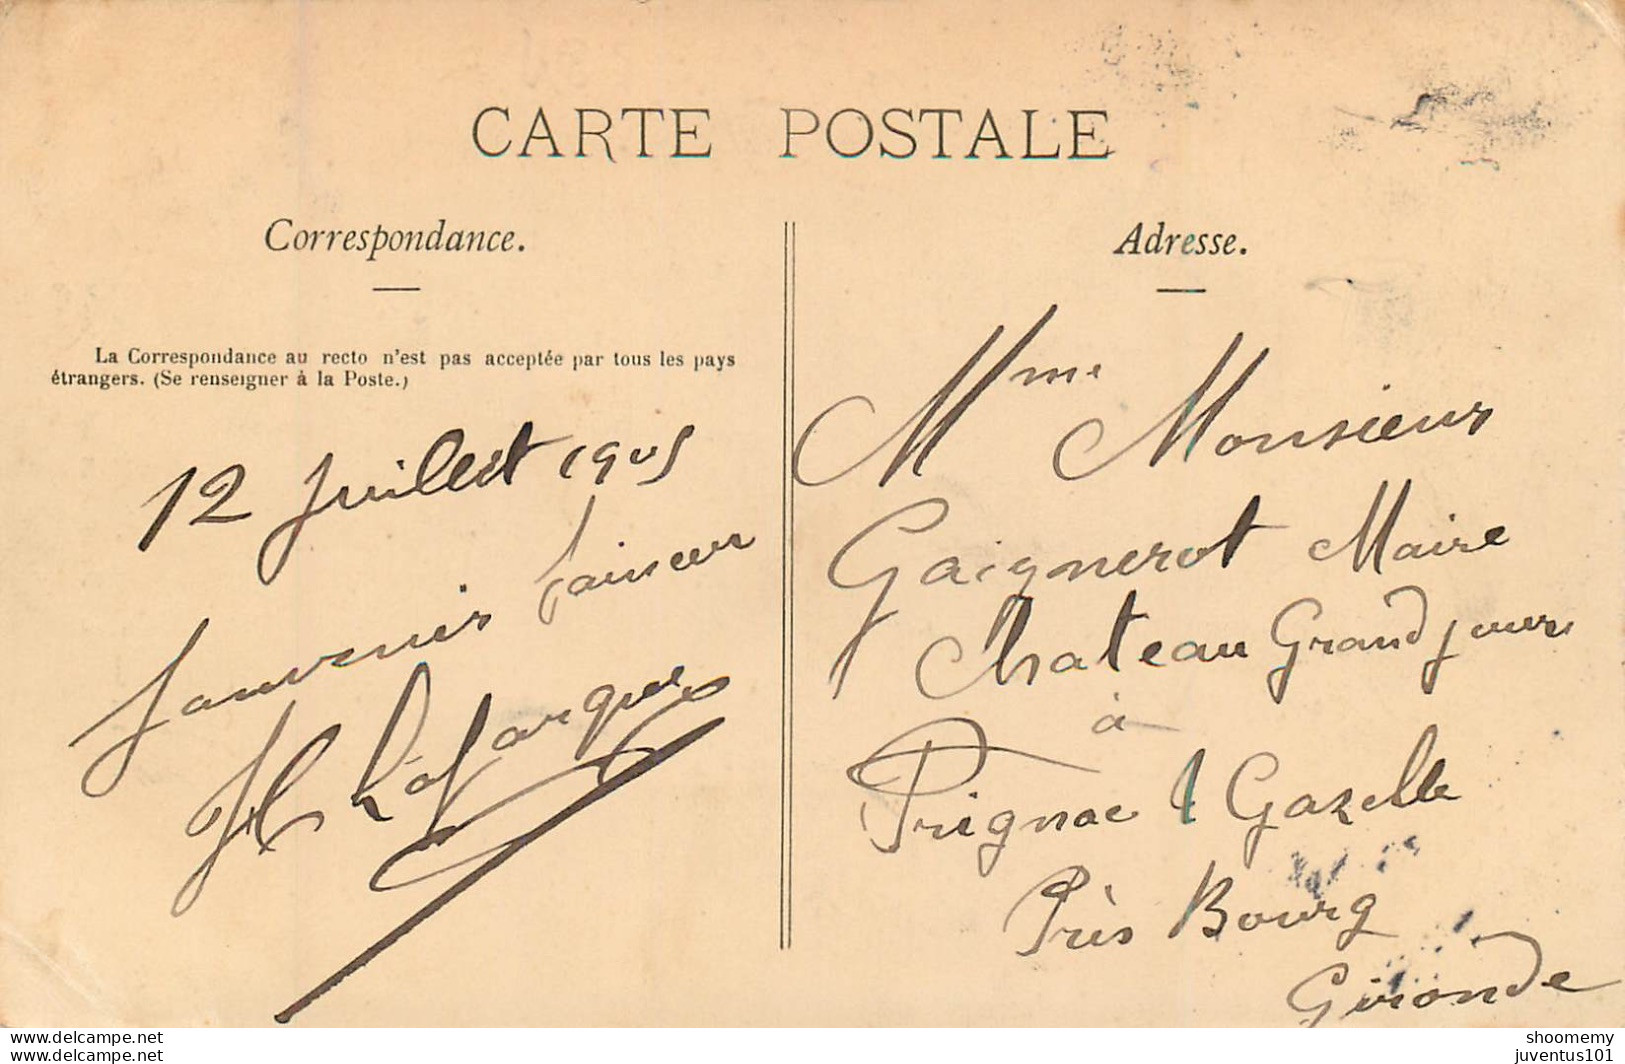 CARTE POSTALE
Correspondance.
La Correspondance au recto n'est pas acceptée par tous les pays
étrangers. (Se renseigner à la Poste.)
12 Juillet 1905
Souvenir
H Lafargue
Adresse.
Mme Monsieur
Gaignerot Maire
Chateau Grand jour
à
Prignac & Gazelle
Près Bourg
Gironde
delcampe.net
delcampe.net
shoomemy
juventus101